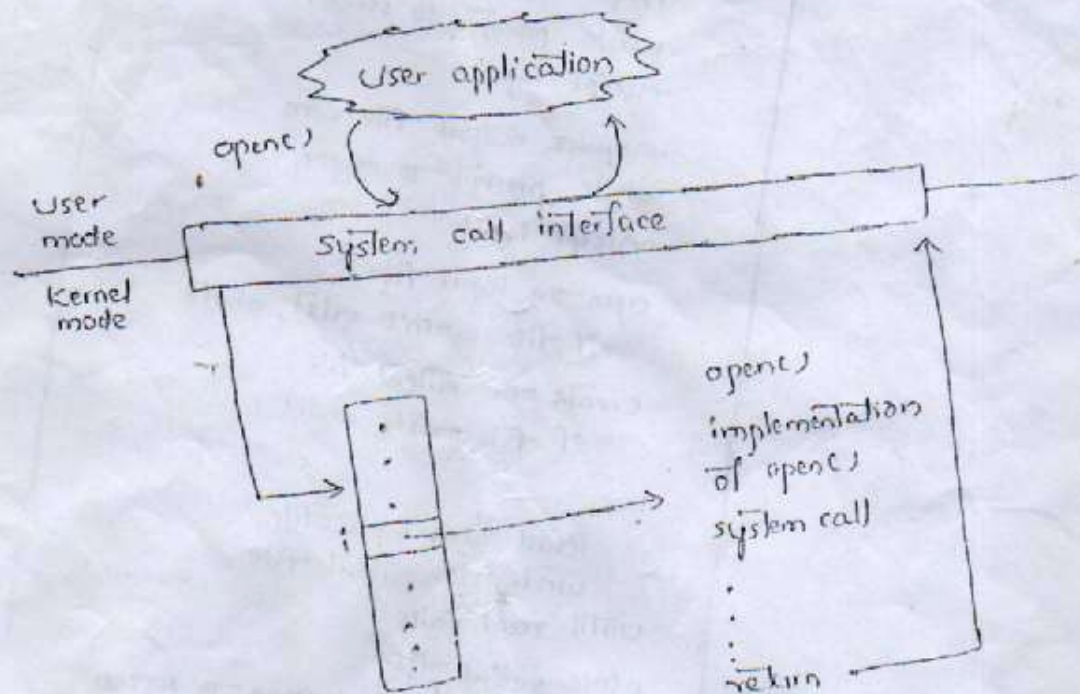 User application
open()
user
mode
system call interface
Kernel
mode
open()
implementation
of open()
system call
i
return